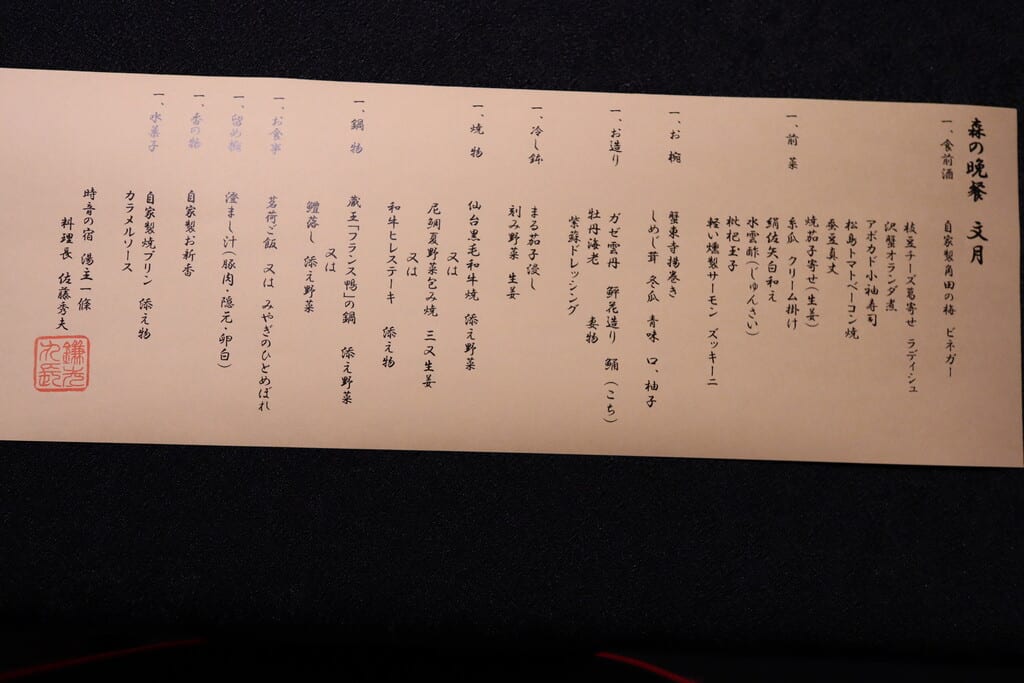 森の晩餐　文月
一、食前酒
自家製角田の梅　ビネガー
一、前菜
枝豆チーズ葛寄せ　ラディシュ
沢蟹オランダ煮
アボカド小袖寿司
松島トマトベーコン焼
蚕豆真丈
焼茄子寄せ(生姜)
糸瓜　クリーム掛け
絹佐矢白和え
水雲酢(じゅんさい)
枇杷玉子
軽い燻製サーモン　ズッキーニ
一、お椀
蟹東寺揚巻き
しめじ茸　冬瓜　青味　口、柚子
一、お造り
ガゼ雲丹　鮃花造り　鯒(こち)
牡丹海老　妻物
紫蘇ドレッシング
一、冷し鉢
まる茄子浸し
刻み野菜　生姜
一、焼物
仙台黒毛和牛焼　添え野菜
又は
尼鯛夏野菜包み焼　三又生姜
又は
和牛ヒレステーキ　添え物
一、鍋物
蔵王「フランス鴨」の鍋　添え野菜
又は
鱧落し　添え野菜
一、お食事
茗荷ご飯　又は　みやぎのひとめぼれ
一、留め椀
澄まし汁(豚肉・隠元・卵白)
一、香の物
自家製お新香
一、水菓子
自家製焼プリン　添え物
カラメルソース
時音の宿　湯主一條
料理長　佐藤秀夫